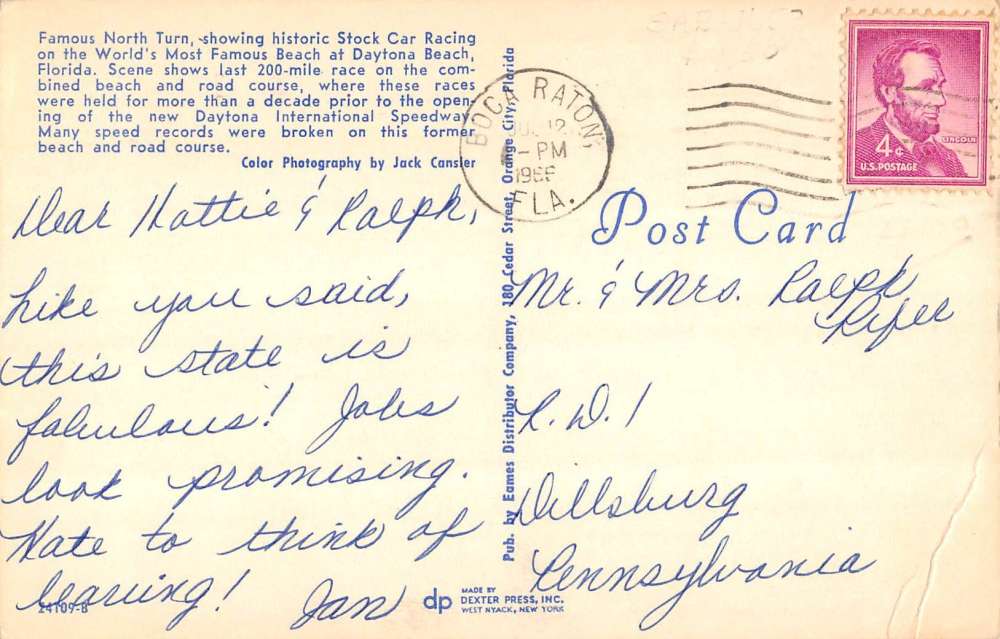 Famous North Turn, showing historic Stock Car Racing
on the World's Most Famous Beach at Daytona Beach,
Florida. Scene shows last 200-mile race on the com-
bined beach and road course, where these races
were held for more than a decade prior to the open-
ing of the new Daytona International Speedway.
Many speed records were broken on this former
beach and road course.
Color Photography by Jack Cansler
Dear Hattie & Ralph,
Like you said,
this state is
fabulous! Jobs
look promising.
Hate to think of
leaving! Jan
24109-B
Pub. by Eames Distributor Company, 180 Cedar Street, Orange City, Florida
dp
MADE BY
DEXTER PRESS, INC.
WEST NYACK, NEW YORK
BOCA RATON,
12
PM
FLA.
4¢
LINCOLN
U.S. POSTAGE
Post Card
Mr. & Mrs. Ralph
R.D. 1
Dillsburg
Pennsylvania